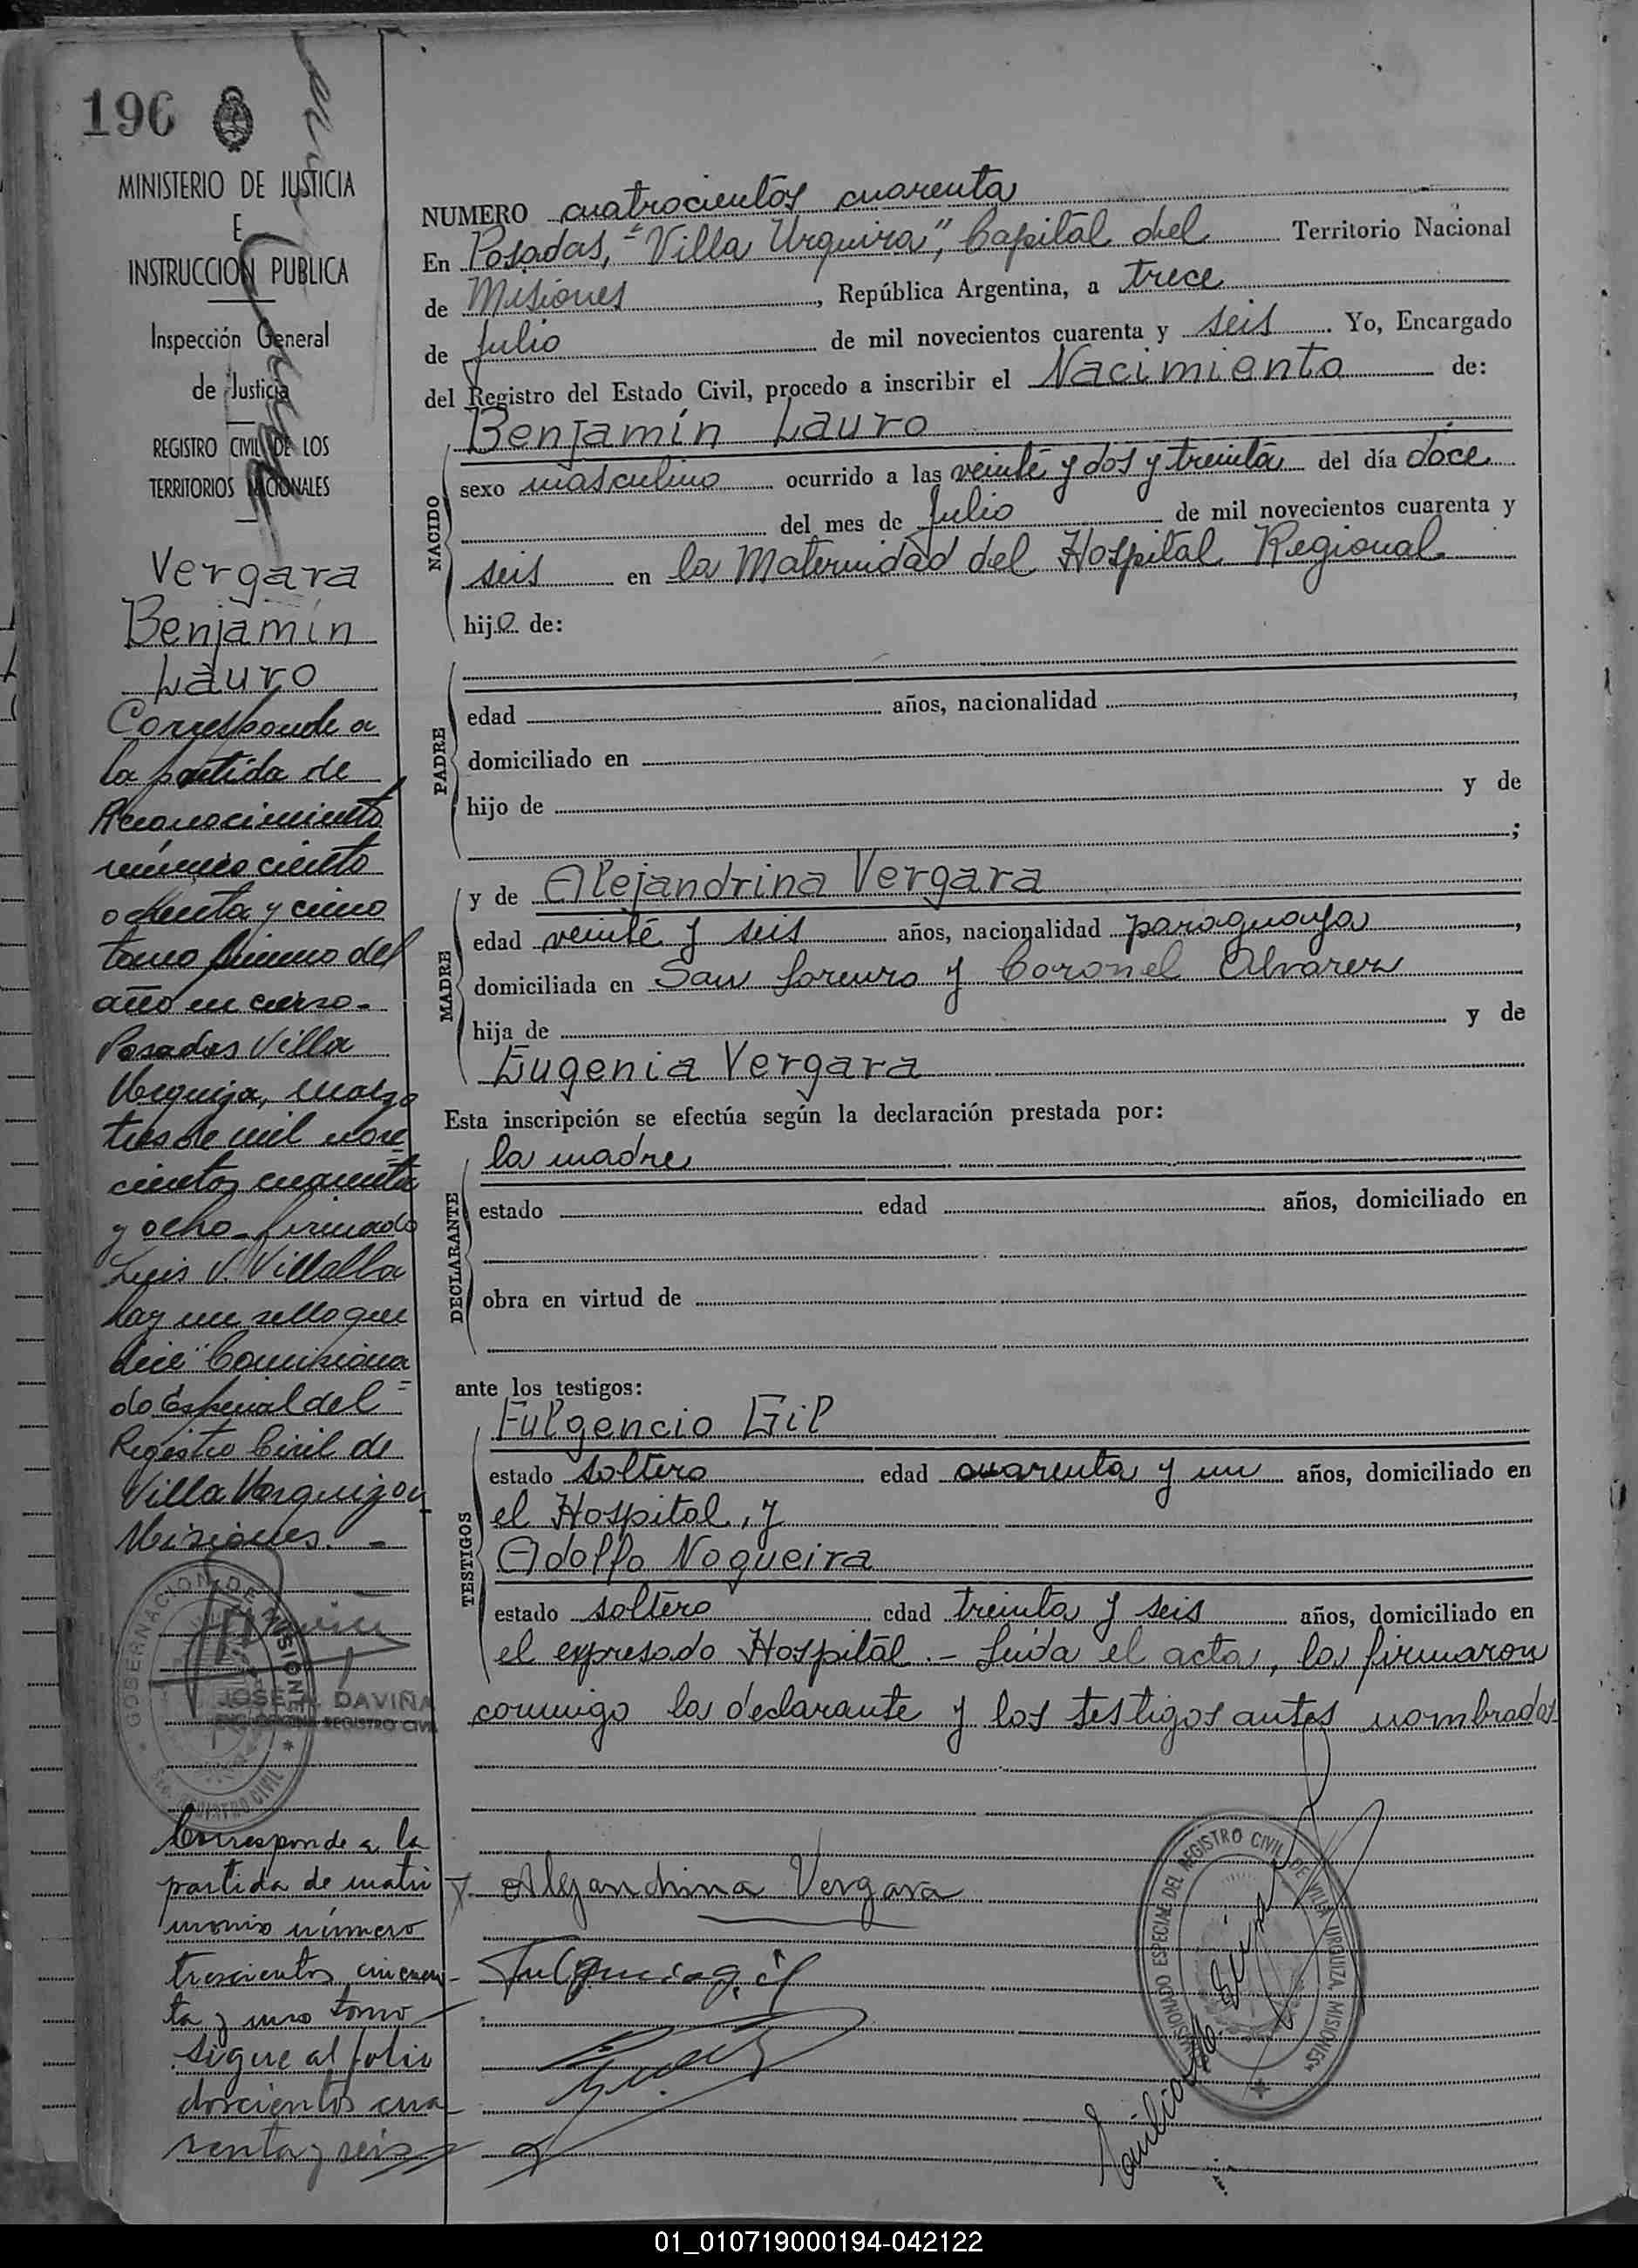 196
MINISTERIO DE JUSTICIA
E
INSTRUCCION PUBLICA
Inspección General
de Justicia
REGISTRO CIVIL DE LOS
TERRITORIOS NACIONALES
Vergara
Benjamín
Lauro
Corresponde a
la partida de
Reconocimiento
número ciento
ochenta y cinco
tomo primero del
año en curso.-
Posadas Villa
Urquiza, marzo
tres de mil nove
cientos cincuenta
y ocho - firmado
Luis V. Villalba
hay un sello que
dice "Comisiona
do Especial del
Registro Civil de
Villa Urquiza
Misiones. -
GOBERNACION DE MISIONES
JOSE A. DAVIÑA
REGISTRO CIVIL
Corresponde a la
partida de matri
monio número
trescientos cincuen-
ta y uno tomo
sigue al folio
doscientos cua
renta y seis
NUMERO cuatrocientos cuarenta
En Posadas, "Villa Urquiza", Capital del Territorio Nacional
de Misiones, República Argentina, a trece
de Julio de mil novecientos cuarenta y seis. Yo, Encargado
del Registro del Estado Civil, procedo a inscribir el Nacimiento de:
NACIDO
Benjamín Lauro
sexo masculino ocurrido a las veinte y dos y treinta del día doce
del mes de Julio de mil novecientos cuarenta y
seis en la Maternidad del Hospital Regional
hijo de:
PADRE
edad años, nacionalidad ,
domiciliado en
hijo de y de
;
MADRE
y de Alejandrina Vergara
edad veinte y seis años, nacionalidad paraguaya,
domiciliada en San Lorenzo y Coronel Alvarez
hija de y de
Eugenia Vergara
Esta inscripción se efectúa según la declaración prestada por:
DECLARANTE
la madre
estado edad años, domiciliado en
obra en virtud de
ante los testigos:
TESTIGOS
Fulgencio Gil
estado soltero edad cuarenta y un años, domiciliado en
el Hospital, y
Adolfo Nogueira
estado soltero edad treinta y seis años, domiciliado en
el expresado Hospital.- Leída el acta, la firmaron
conmigo la declarante y los testigos antes nombrados
Alejandrina Vergara
Fulgencio Gil
COMISIONADO ESPECIAL DEL REGISTRO CIVIL DE VILLA URQUIZA, MISIONES
01_010719000194-042122